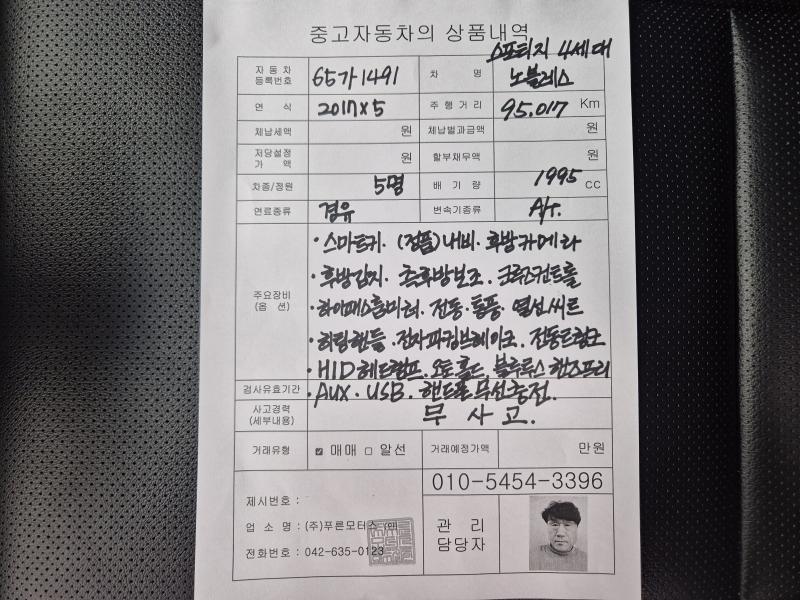 중고자동차의 상품내역
자동차 등록번호 65가1491 차 명 스포티지 4세대 노블레스
연 식 2017x5 주행거리 95.017 Km
체납세액 원 체납벌과금액 원
저당설정 가 액 원 할부채무액 원
차종/정원 5명 배 기 량 1995 cc
연료종류 경유 변속기종류 A/T.
주요장비 (옵 션)
·스마트키. (정품)내비. 후방카메라
·후방감지. 측후방보조. 크루즈컨트롤
·하이패스룸미러. 전동·통풍·열선씨트
·히팅핸들. 전자파킹브레이크. 전동트렁크
·HID헤드램프. 오토홀드. 블루투스 핸즈프리
검사유효기간 ·AUX. USB. 핸드폰무선충전.
사고경력 (세부내용) 무 사 고.
거래유형 ☑ 매매 □ 알선 거래예정가액 만원
010-5454-3396
제시번호 :
업 소 명 : (주)푸른모터스 (인)
전화번호 : 042-635-0123
관 리
담당자